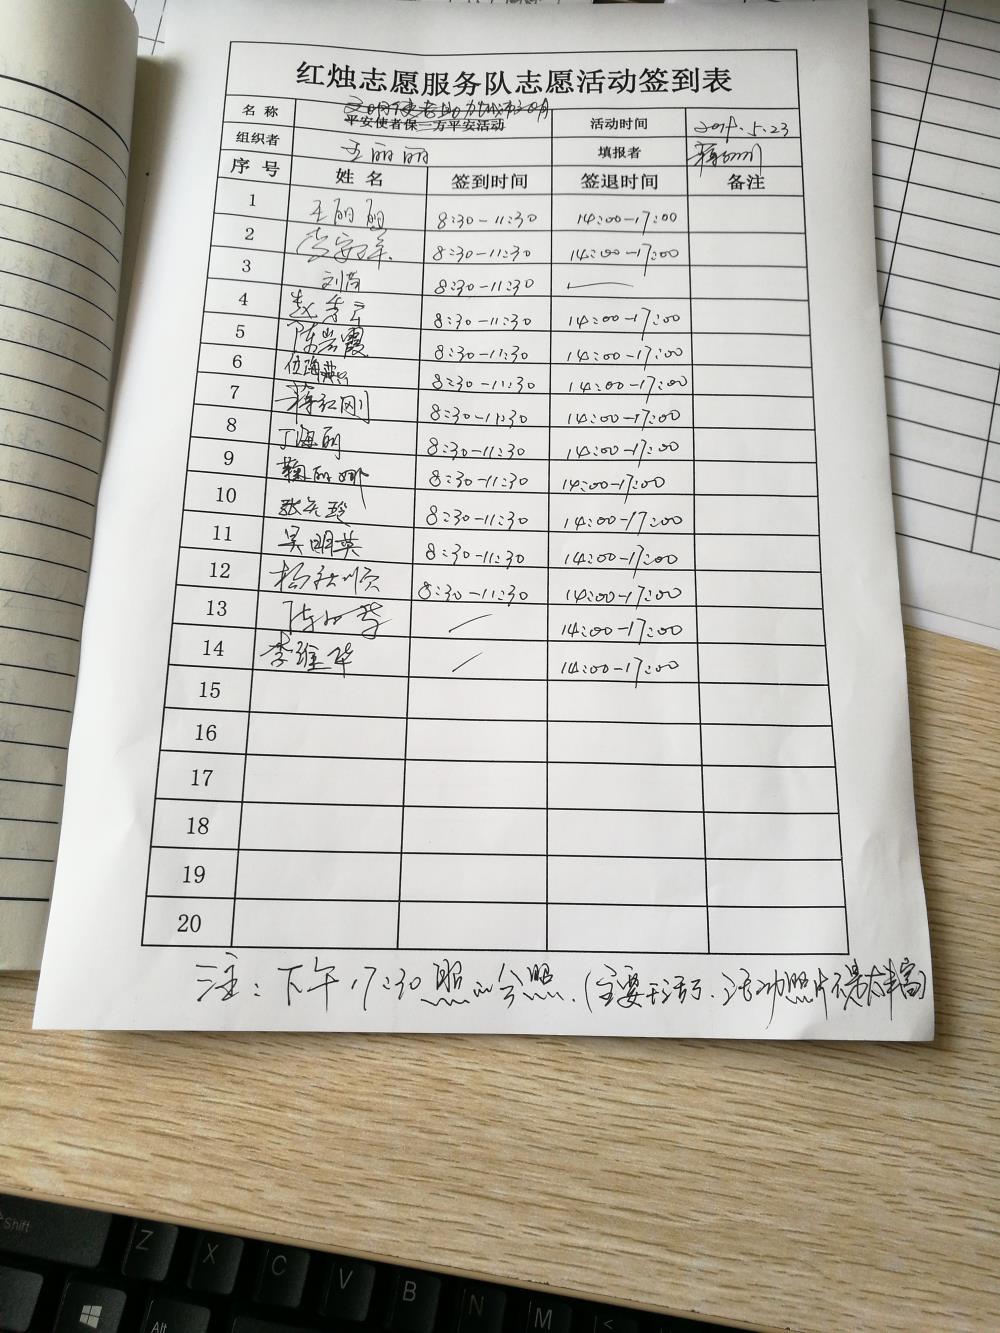 红烛志愿服务队志愿活动签到表
名 称 文明使者助力城市文明 平安使者保一方平安活动 活动时间 5.23
组织者 王丽丽 填报者
序 号 姓 名 签到时间 签退时间 备注
1 王丽丽 8:30-11:30 14:00-17:00
2 8:30-11:30 14:00-17:00
3 刘芮 8:30-11:30
4 赵秀云 8:30-11:30 14:00-17:00
5 陈岩霞 8:30-11:30 14:00-17:00
6 8:30-11:30 14:00-17:00
7 蒋红刚 8:30-11:30 14:00-17:00
8 丁海丽 8:30-11:30 14:00-17:00
9 鞠丽娜 8:30-11:30 14:00-17:00
10 张冬玲 8:30-11:30 14:00-17:00
11 吴明英 8:30-11:30 14:00-17:00
12 杨秋顺 8:30-11:30 14:00-17:00
13 / 14:00-17:00
14 李维华 / 14:00-17:00
15
16
17
18
19
20
注：下午17:30照的合照.(主要干活了.活动照片不是太丰富)
Shift
Z X C V B N M <
Alt